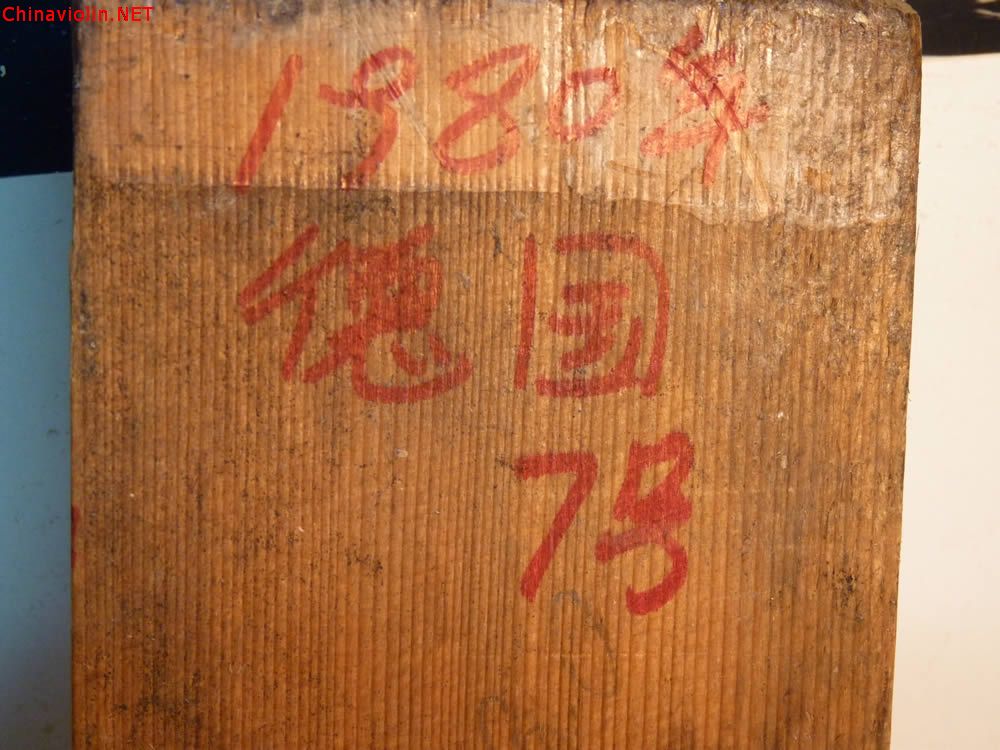 Chinaviolin.NET
1980年
德国
7号